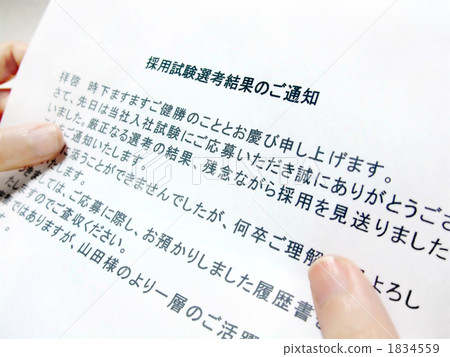 採用試験選考結果のご通知
拝啓 時下ますますご健勝のこととお慶び申し上げます。
さて、先日は当社入社試験にご応募いただき誠にありがとうござ
いました。厳正なる選考の結果、残念ながら採用を見送りました
ご通知いたします。
添うことができませんでしたが、何卒ご理解 よろし
します。
しては、ご応募に際し、お預かりしました履歴書を
ですのでご査収ください。
ではありますが、山田様のより一層のご活躍
PIXTA
pixta.jp - 1834559